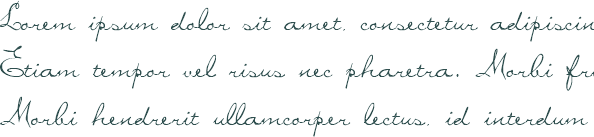 Lorem ipsum dolor sit amet, consectetur adipiscin
Etiam tempor vel risus nec pharetra. Morbi fr
Morbi hendrerit ullamcorper lectus, id interdum